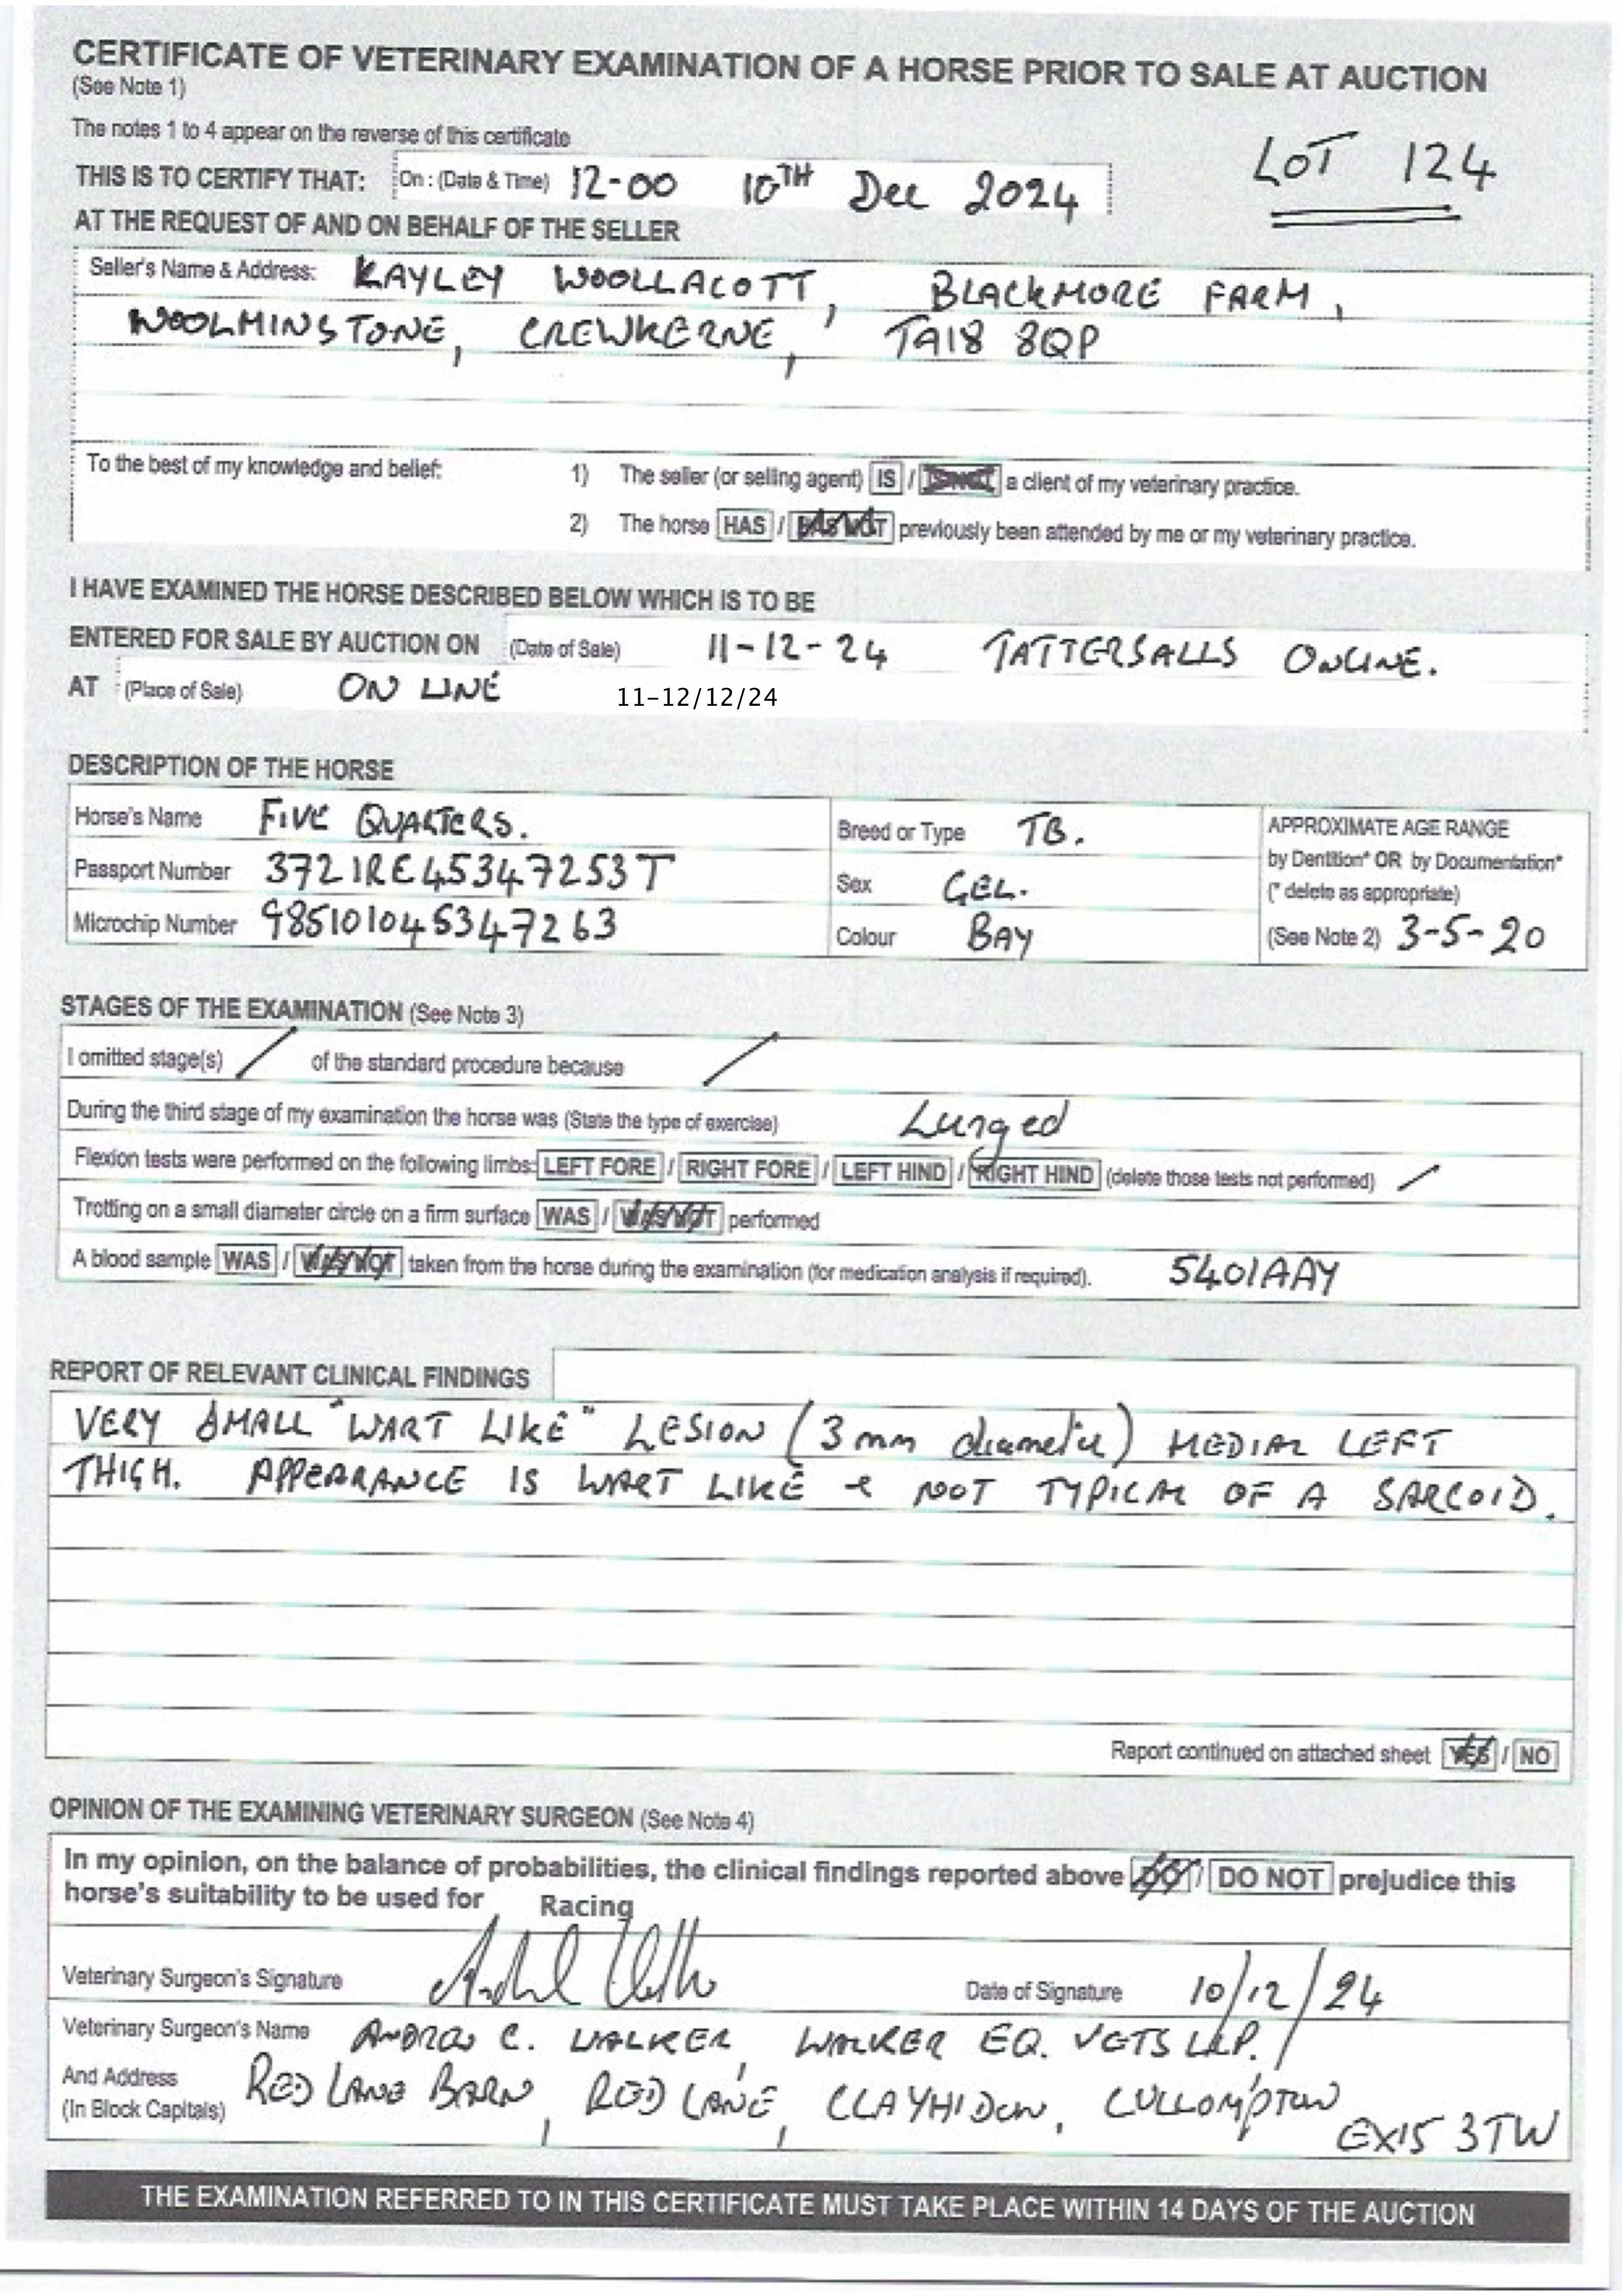 CERTIFICATE OF VETERINARY EXAMINATION OF A HORSE PRIOR TO SALE AT AUCTION
(See Note 1)
The notes 1 to 4 appear on the reverse of this certificate
LOT 124
THIS IS TO CERTIFY THAT: On : (Date & Time) 12-00 10TH Dec 2024
AT THE REQUEST OF AND ON BEHALF OF THE SELLER
Seller's Name & Address: KAYLEY WOOLLACOTT, BLACKMORE FARM,
WOOLMINSTONE, CREWKERNE, TA18 8QP
To the best of my knowledge and belief: 1) The seller (or selling agent) IS / IS NOT a client of my veterinary practice.
2) The horse HAS / HAS NOT previously been attended by me or my veterinary practice.
I HAVE EXAMINED THE HORSE DESCRIBED BELOW WHICH IS TO BE
ENTERED FOR SALE BY AUCTION ON (Date of Sale) 11-12-24 TATTERSALLS ONLINE.
AT (Place of Sale) ON LINE 11-12/12/24
DESCRIPTION OF THE HORSE
Horse's Name FIVE QUARTERS. Breed or Type TB. APPROXIMATE AGE RANGE
by Dentition* OR by Documentation*
Passport Number 372IRE45347253T Sex GEL. (* delete as appropriate)
Microchip Number 985101045347263 Colour BAY (See Note 2) 3-5-20
STAGES OF THE EXAMINATION (See Note 3)
I omitted stage(s) / of the standard procedure because /
During the third stage of my examination the horse was (State the type of exercise) Lunged
Flexion tests were performed on the following limbs: LEFT FORE / RIGHT FORE / LEFT HIND / RIGHT HIND (delete those tests not performed) /
Trotting on a small diameter circle on a firm surface WAS / WAS NOT performed
A blood sample WAS / WAS NOT taken from the horse during the examination (for medication analysis if required). 5401AAY
REPORT OF RELEVANT CLINICAL FINDINGS
VERY SMALL "WART LIKE" LESION (3mm diameter) MEDIAL LEFT
THIGH. APPEARANCE IS WART LIKE & NOT TYPICAL OF A SARCOID.
Report continued on attached sheet YES / NO
OPINION OF THE EXAMINING VETERINARY SURGEON (See Note 4)
In my opinion, on the balance of probabilities, the clinical findings reported above DO / DO NOT prejudice this
horse's suitability to be used for Racing
Veterinary Surgeon's Signature Date of Signature 10/12/24
Veterinary Surgeon's Name ANDREW C. WALKER, WALKER EQ. VETS LLP.
And Address RED LANE BARN, RED LANE, CLAYHIDON, CULLOMPTON
(In Block Capitals) EX15 3TW
THE EXAMINATION REFERRED TO IN THIS CERTIFICATE MUST TAKE PLACE WITHIN 14 DAYS OF THE AUCTION